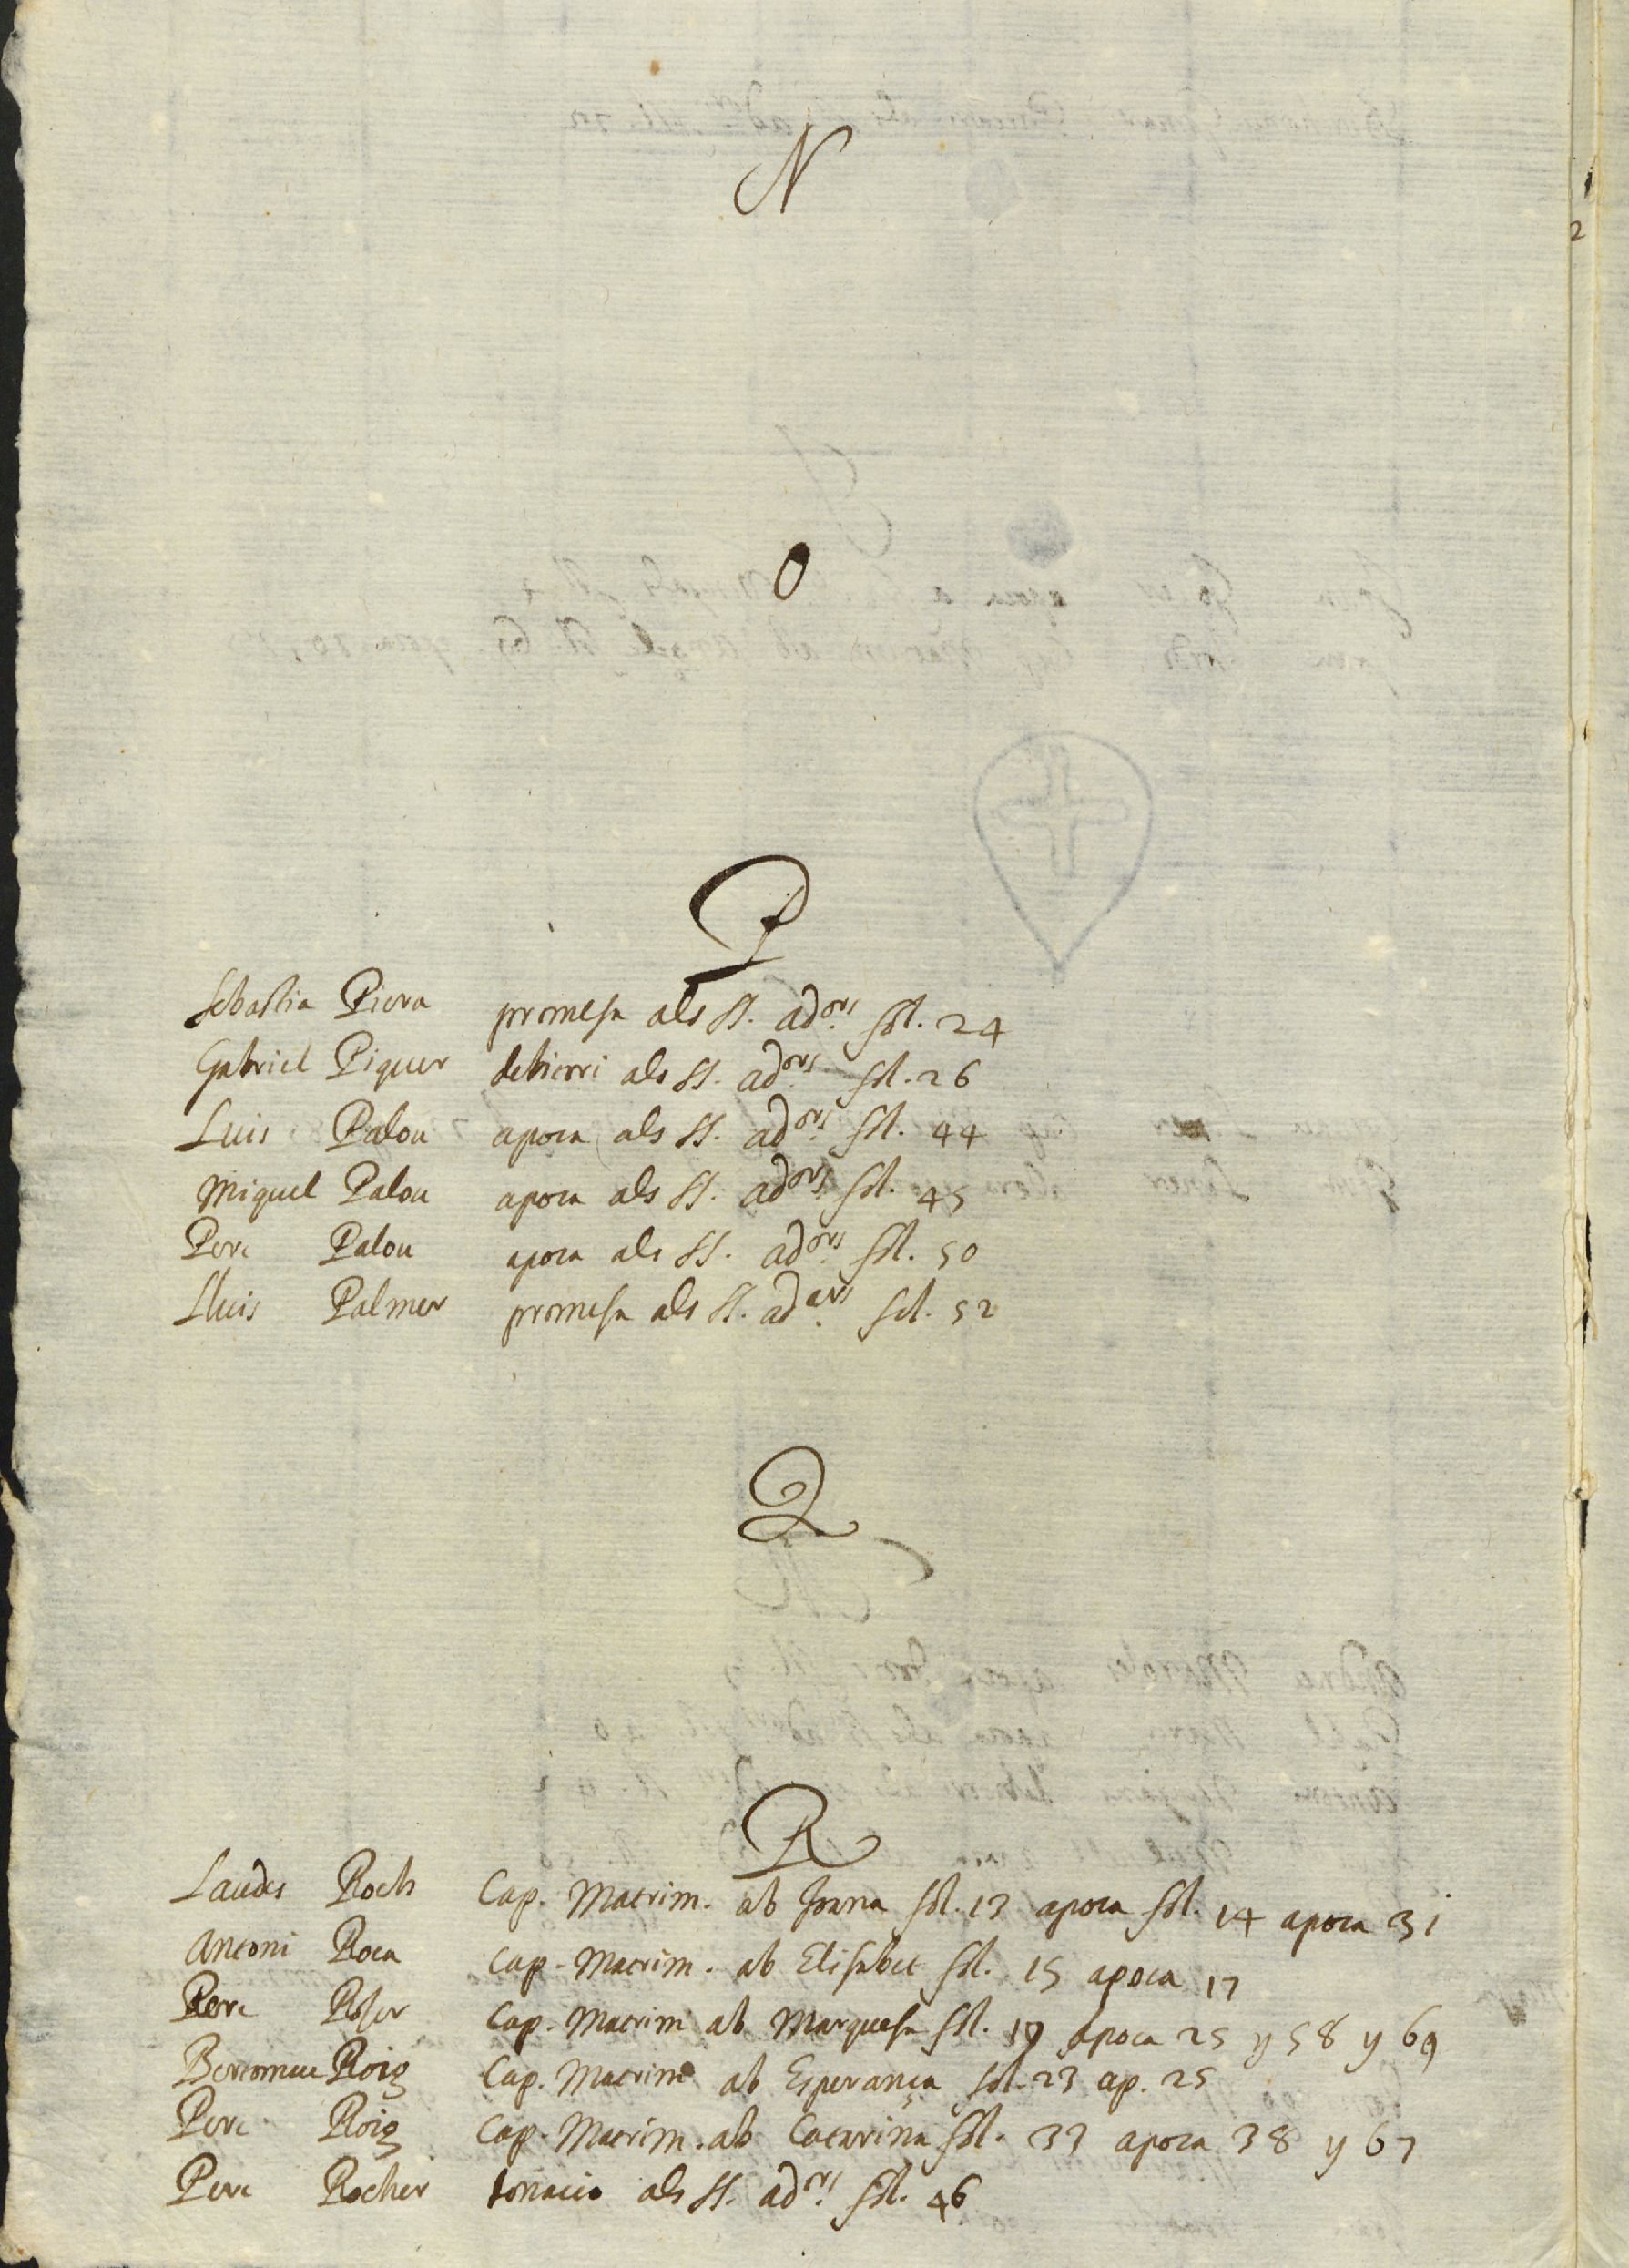 N
2
O
P
Sebastia Piera promesa als SS. ad.ors fol. 24
Gabriel Piquer debitori als SS. ad.ors fol. 26
Luis Palou apoca als SS. ad.ors fol. 44
Miquel Palou apoca als SS. ad.ors fol. 45
Pere Palou apoca als SS. ad.ors fol. 50
Lluis Palmer promesa als SS. ad.ors fol. 52
Q
R
Laudes Roch Cap. Matrim. ab Joana fol. 13 apoca fol. 14 apoca 31
Antoni Roca Cap. Matrim. ab Elisabet fol. 15 apoca 17
Pere Roser Cap. Matrim ab Marquesa fol. 19 apoca 25 y 58 y 69
Bertomeu Roig Cap. Matrim ab Esperança fol. 23 ap. 25
Pere Roig Cap. Matrim. ab Catarina fol. 33 apoca 38 y 67
Pere Rocher donacio als SS. ad.ors fol. 46